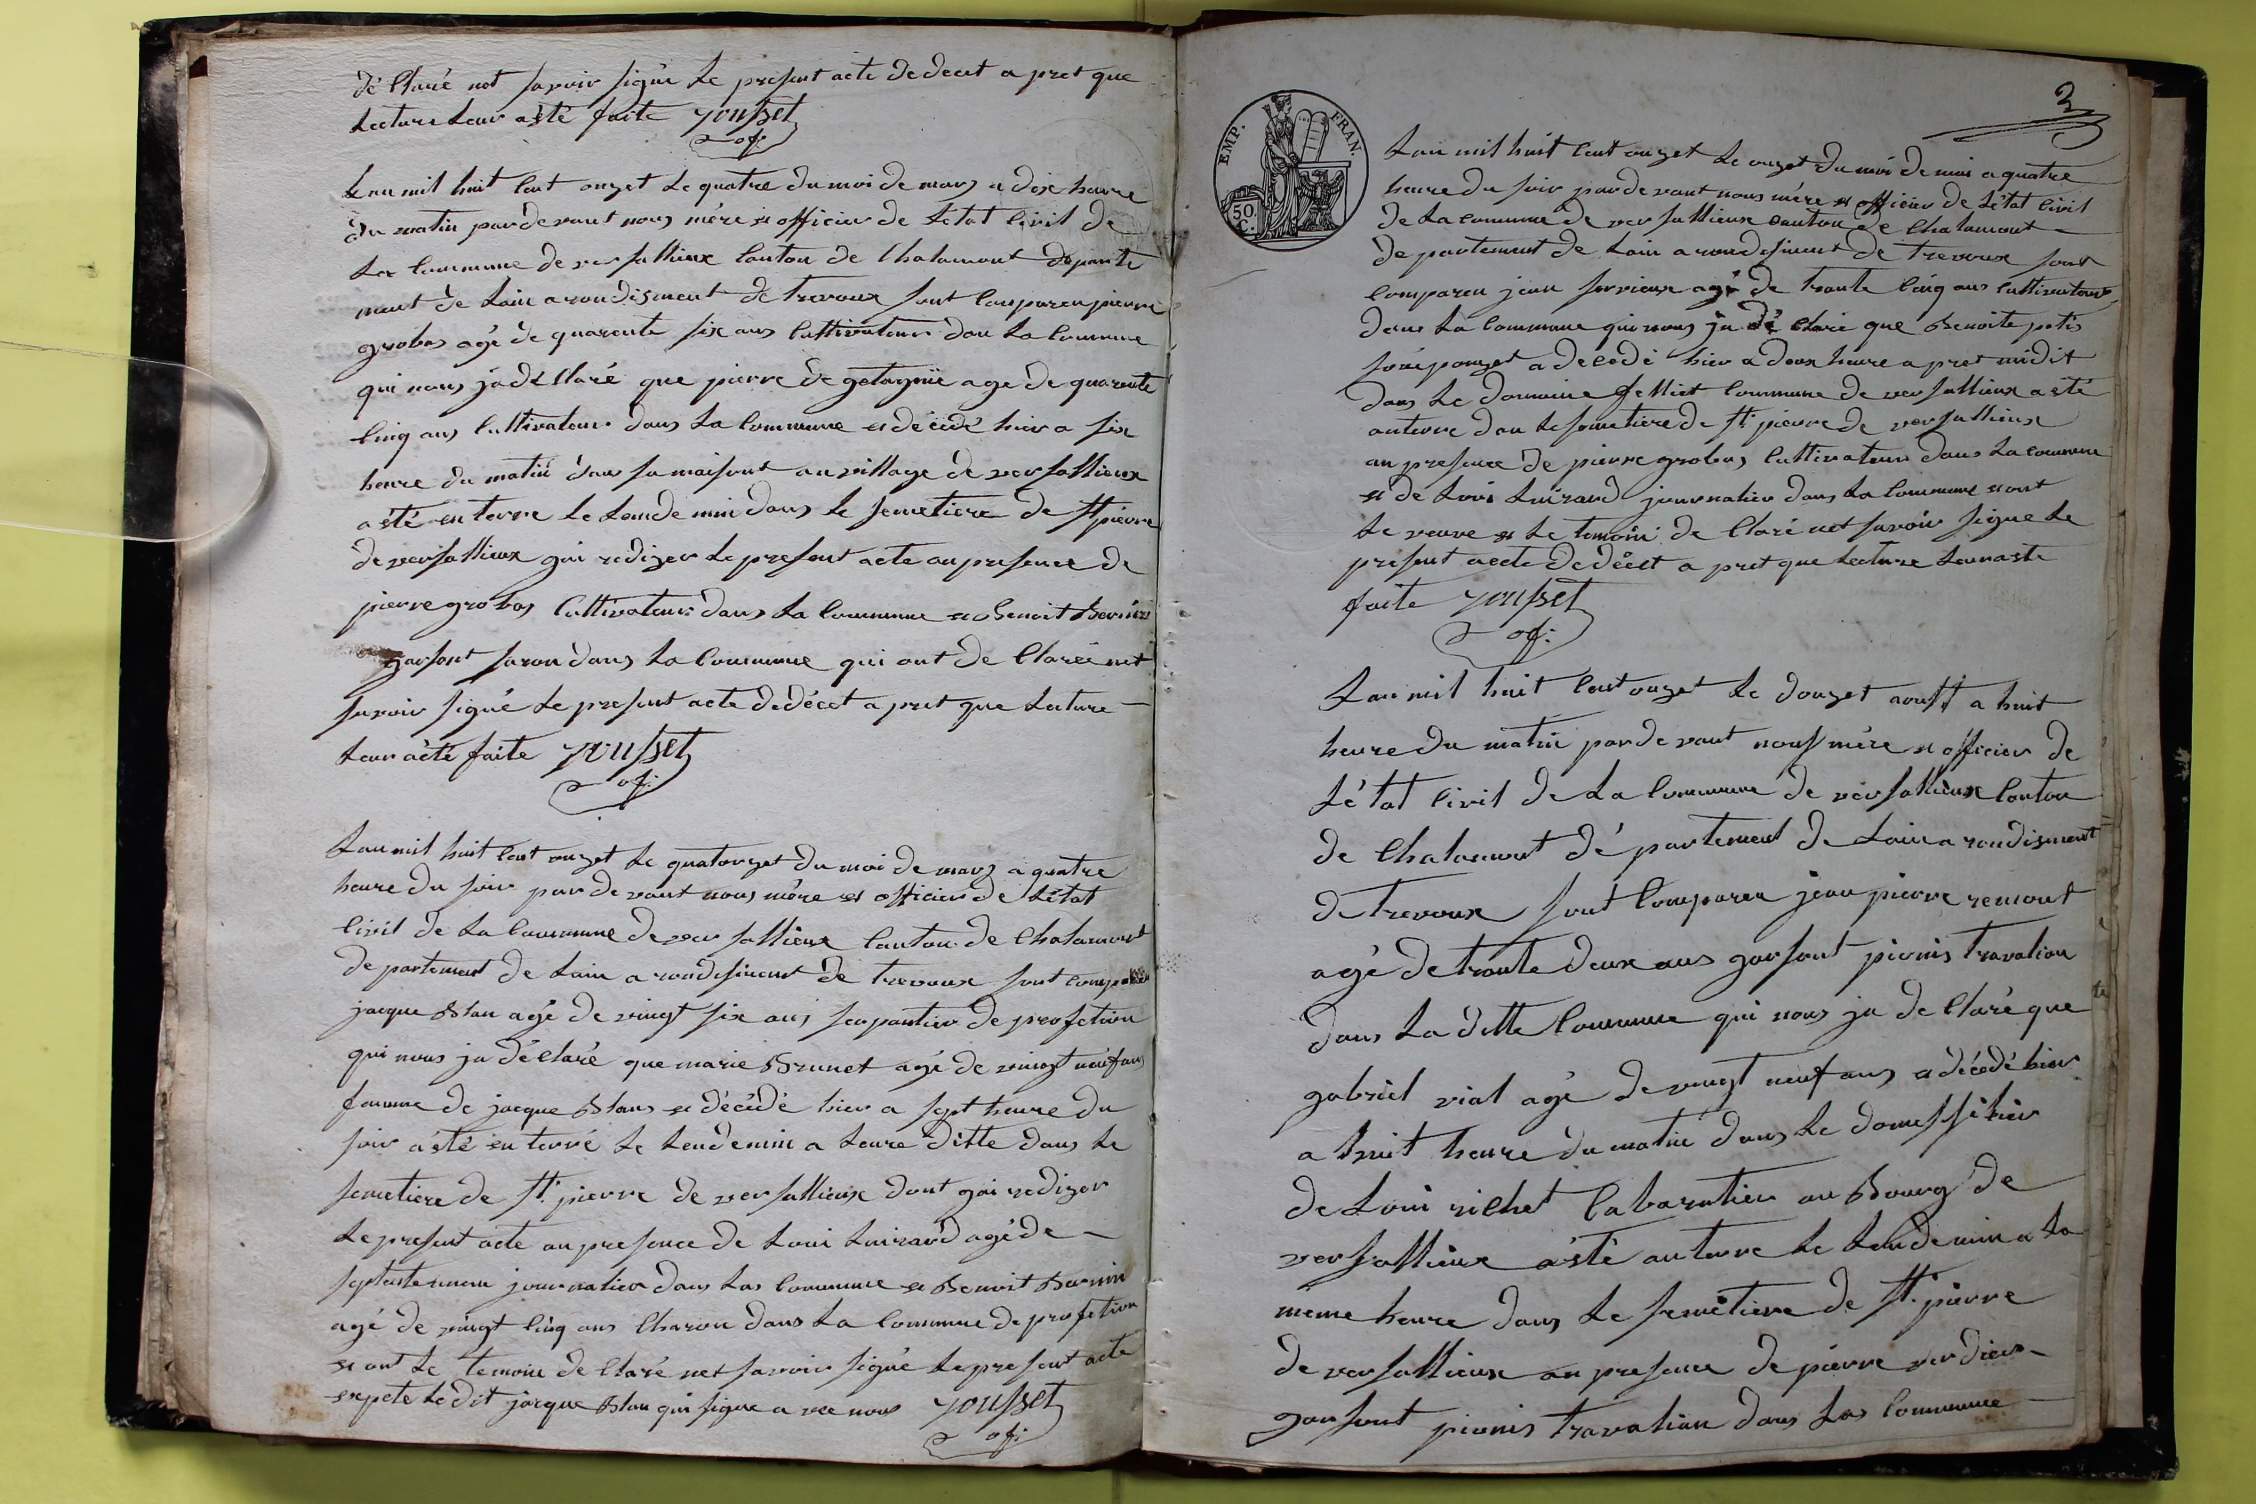 dé Claré not savoir signé Le present acte de decet a pret que
Lecture Leur a été faite Yousset
of:
Lan mil huit Cent onzet Le quatre du moi de mars a dix heure
du matin par devant nous mére et officier de Letat Civil de
La Commune de versallieux Canton de Chalamont departe
ment de Lain arondisment de trevoux sont Compareu pierre
grobas agé de quarente six ans Cultivateur dan La Commune
qui nous ja déClaré que pierre de gotagnie age de quarente
Cinq ans Cultivateur dans La Commune et décédé hier a six
heure du matin dans sa maisont au village de versallieux
a été enterre Le Landemin dans Le semetiere de St pierre
de versallieux gai rediger Le present acte an presence de
pierre grobas Cultivateur dans La Commune et Benoit Bernin
garsont saron dans La Commune qui ont de Clarée net
savoir signé Le present acte de décet a pret que Lecture
Leur a été faite Yousset
of:
Lan mil huit Cent onzet Le quatorzet du moi de mars a quatre
heure du soir par devant nous mére et officier de Létat
Civil de La Commune de versallieux Canton de Chalamont
departement de Lain arondisiment de trevoux sont comparu
jacque Blan agé de vingt six ans serpantier de profetion
qui nous ja déClaré que marie Brunet agé de vingt neuf ans
famme de jacque Blans et décédé hier a sept heure du
soir a été enterré Le Lendemin a Leure ditte dans Le
semetiere de St pierre de versallieux dont gai rediger
Le present acte an presence de Loui Luirard agé de
septante unan journalier dans Las Commune et Benoit Bernin
agé de vingt Cinq ans Charon dans La Commune de profetion
et ont Le temoin de Claré net savoir signé Le present acte
expete Le dit jacque Blan qui signe a vec nous Yousset
of:
3
EMP. FRAN.
50
C.
Lan mil huit Cent onzet Le onzet du moi de mai a quatre
heure du soir par devant nous mére et officier de Létat Civil
de La commune de versallieux canton de Chalamont
departement de Lain arondisiment de trevoux sont
Compareu jean servieux agé de trante Cinq ans Cultivateur
dans La Commune qui nous ja dé Claré que Benoite petis
a decedé hier a deux heure a pret midit
dans Le domaine Commune de versallieux a été
anterre dan Le semetiere de St pierre de versallieux
an presence de pierre grobas Cultivateur dans La Commune
et de Loui Luirard journalier dans La Commune et ont
Le veuve et Le temoin de Claré net savoir signe Le
present acte de décet a pret que Lecture Leur a été
faite Yousset
of:
Lan mil huit Cent onzet Le douzet aoust a huit
heure du matin par devant nous mére et officier de
Létat Civil de La Commune de versallieux Canton
de Chalamont département de Lain arondisment
de trevoux sont Compareu jean pierre remont
agé de trante deux ans garsont pionis travalian
dans La ditte Commune qui nous ja de Claré que
gabriel vial agé de vingt neuf ans a décédé hier
a huit heure du matin dans Le domissilier
de Loui richet Cabaratier au Bourg de
versallieux a été anterre Le Lendemin a La
meme heure dans Le semetiere de St pierre
de versallieux an presence de pierre verdier
garsont pionis travalian dans Las Commune